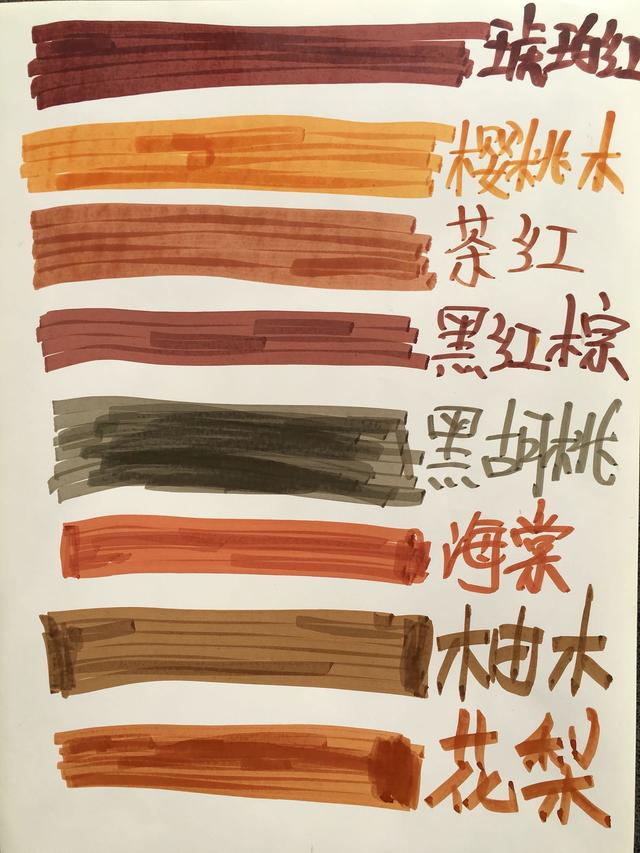 琥珀红
樱桃木
茶红
黑红棕
黑胡桃
海棠
柚木
花梨